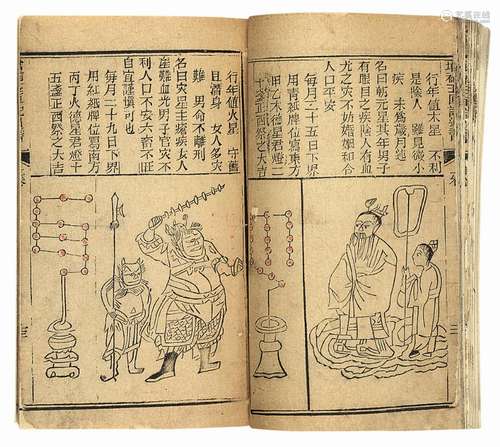 行年值木星 不利
是陰人 難見後小
疾 未為歲月起
名曰朝元星其年男子
有眼目之疾陰人有血
光之灾不妨婚姻和合
人口平安
每月二十五日下界
用青紙牌位寫東方
甲乙木德星君燈二
十盞正西祭之大吉
行年值火星 守舊
且清身 女人多灾
難 男命不離刑
名曰灾星主瘡疾女人
產難血光男子官灾不
利人口不安六畜不旺
自宜謹慎可也
每月二十九日下界
用紅紙牌位寫南方
丙丁火德星君燈十
五盞正西祭之大吉
三